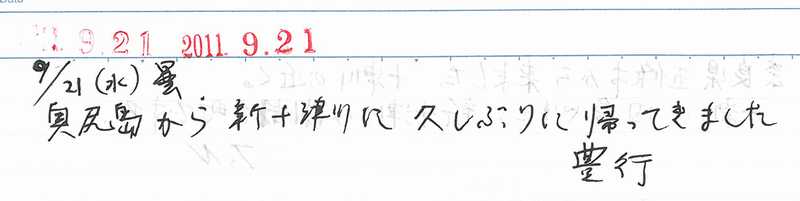 9.21 2011.9.21
9/21 (水) 曇
奥尻島から 新十津川に 久しぶりに帰ってきました
豊行